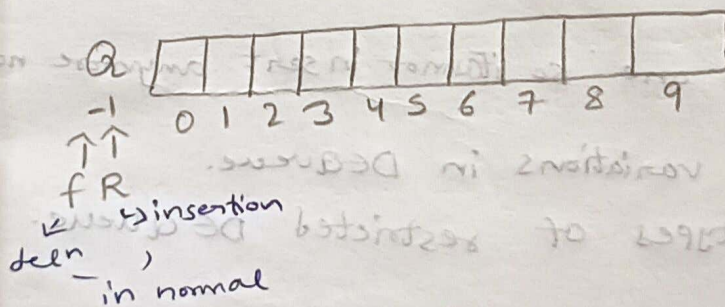 Q
-1 0 1 2 3 4 5 6 7 8 9
↑ ↑
f R
↳ insertion
deln,
in normal